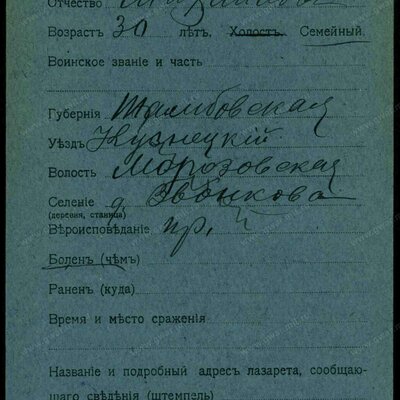 Отчество
Возрастъ 30 лѣтъ, Холостъ. Семейный.
Воинское званіе и часть
Губернія Тамбовская
Уѣздъ Кузнецкій
Волость Морозовская
Селеніе д Звонкова
(деревня, станица)
Вѣроисповѣданіе пр.
Боленъ (чѣмъ)
Раненъ (куда)
Время и мѣсто сраженія
Названіе и подробный адресъ лазарета, сообщаю-
щаго свѣдѣнія (штемпель)